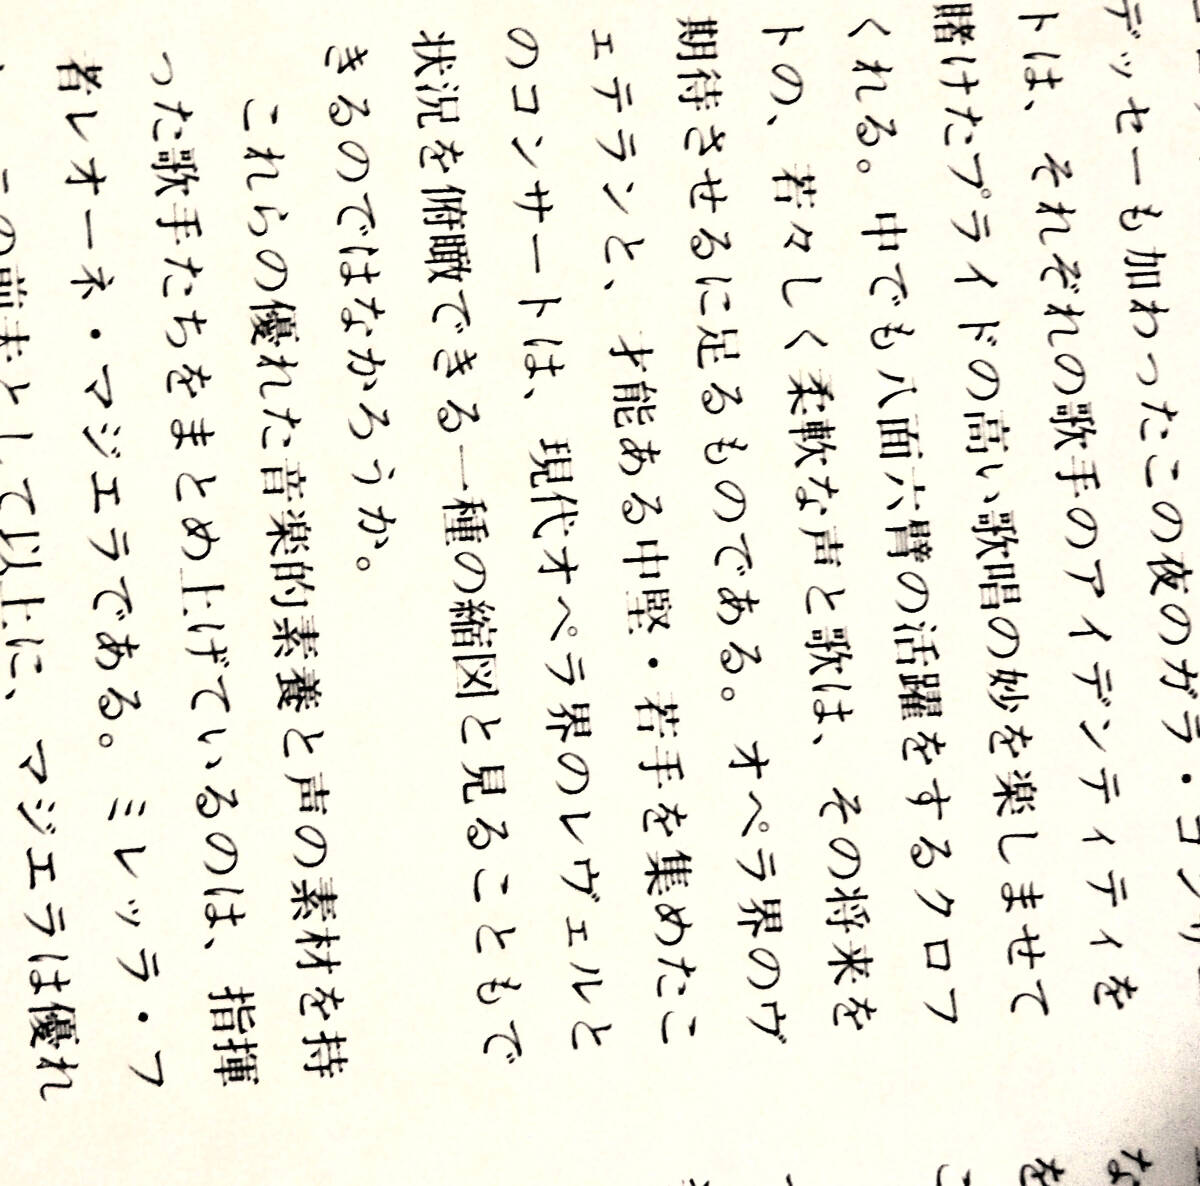 デッセーも加わったこの夜のガラ・コン
トは、それぞれの歌手のアイデンティティを
賭けたプライドの高い歌唱の妙を楽しませて
くれる。中でも八面六臂の活躍をするクロフ
トの、若々しく柔軟な声と歌は、その将来を
期待させるに足るものである。オペラ界のヴ
ェテランと、才能ある中堅・若手を集めたこ
のコンサートは、現代オペラ界のレヴェルと
状況を俯瞰できる一種の縮図と見ることもで
きるのではなかろうか。
これらの優れた音楽的素養と声の素材を持
った歌手たちをまとめ上げているのは、指揮
者レオーネ・マジエラである。ミレッラ・フ
この前夫として以上に、マジエラは優れ